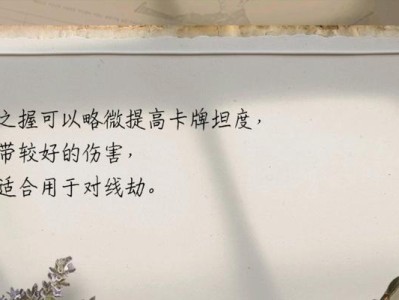 之握可以略微提高卡牌坦度，
带较好的伤害，
适合用于对线劫。